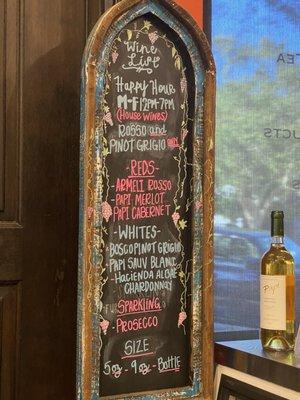 Wine
List
Happy Hour
M-F 12PM-7PM
(House Wines)
Rosso and
Pinot Grigio ONLY
-REDS-
-Armeli Rosso
-Papi Merlot
-Papi Cabernet
-WHITES-
-Bosco Pinot Grigio
-Papi Sauv Blanc
-Hacienda
Chardonnay
SPARKLING
-Prosecco
SIZE
5oz - 9oz - Bottle